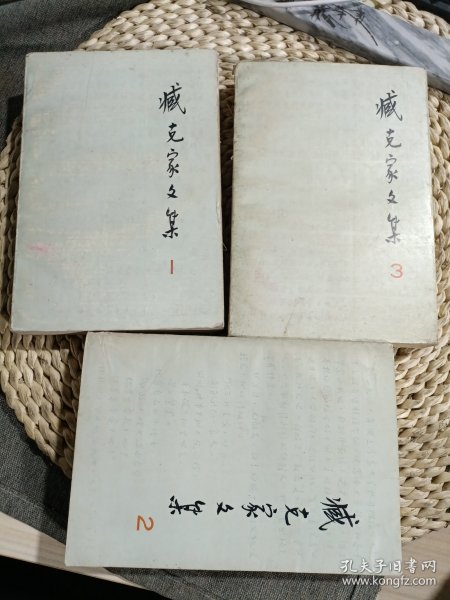 臧克家文集
1
臧克家文集
3
臧克家文集
2
孔夫子旧书网
www.kongfz.com